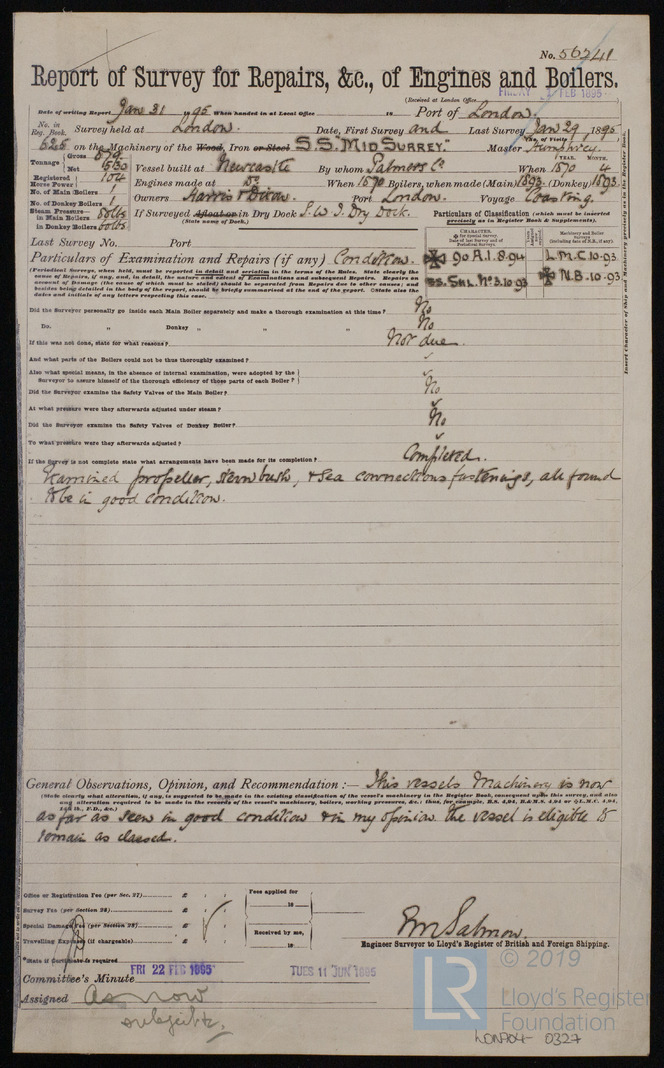 No. 56241
Report of Survey for Repairs, &c., of Engines and Boilers.
(Received at London Office FRIDAY 1 FEB 1895
Date of writing Report Jan 31 1895 When handed in at Local Office 18 Port of London.
No. in Reg. Book. Survey held at London. Date, First Survey and Last Survey Jan 29, 1895
626 on the Machinery of the Wood, Iron or Steel S.S. "MID SURREY." Master Humphrey.
Tonnage Gross 879 Net 550 Vessel built at Newcastle By whom Palmers Co When 1870 4
YEAR. MONTH.
Registered Horse Power 104 Engines made at Do When 1870 Boilers, when made (Main) 1893 (Donkey) 1893
No. of Main Boilers 1 Owners Harris & Dixon Port London. Voyage Coasting.
No. of Donkey Boilers 1
Steam Pressure in Main Boilers 80lbs If Surveyed Afloat or in Dry Dock S.W.I. Dry Dock.
in Donkey Boilers 60lbs (State name of Dock.)
Particulars of Classification (which must be inserted precisely as in Register Book & Supplements).
Last Survey No. Port
CHARACTER.
Machinery and Boiler Surveys (including date of N.B., if any)
90 A.1. 8.94 L.M.C. 10.93
SS. Sul. No 3. 10.93 N.B. 10.93
Insert Character of Ship and Machinery precisely as in the Register Book.
Particulars of Examination and Repairs (if any) Condition.
(Periodical Surveys, when held, must be reported in detail and seriatim in the terms of the Rules. State clearly the
cause of Repairs, if any, and, in detail, the nature and extent of Examinations and subsequent Repairs. Repairs on
account of Damage (the cause of which must be stated) should be separated from Repairs due to other causes; and
besides being detailed in the body of the report, should be briefly summarised at the end of the report. State also the
dates and initials of any letters respecting this case.
Did the Surveyor personally go inside each Main Boiler separately and make a thorough examination at this time? No
Do. " Donkey " " " No
If this was not done, state for what reasons? Not due.
And what parts of the Boilers could not be thus thoroughly examined?
Also what special means, in the absence of internal examination, were adopted by the
Surveyor to assure himself of the thorough efficiency of those parts of each Boiler?
Did the Surveyor examine the Safety Valves of the Main Boiler? No
At what pressure were they afterwards adjusted under steam?
Did the Surveyor examine the Safety Valves of Donkey Boiler? No
To what pressure were they afterwards adjusted?
If the Survey is not complete state what arrangements have been made for its completion? Completed.
Examined propeller, stern bush, & sea connections fastenings, all found
to be in good condition.
General Observations, Opinion, and Recommendation :— This vessels Machinery is now
(State clearly what alteration, if any, is suggested to be made in the existing classification of the vessel's machinery in the Register Book, consequent upon this survey, and also
any alteration required to be made in the records of the vessel's machinery, boilers, working pressures, &c.; thus, for example, B.S. 4,94, B.&M.S. 4,94 or L.M.C. 4,94,
as far as seen in good condition & in my opinion the vessel is eligible to
remain as classed.
Office or Registration Fee (per Sec. 27) £ : :
Survey Fee (per Section 28) £ : :
Special Damage Fee (per Section 28) £ : :
Travelling Expenses (if chargeable) £ : :
Fees applied for
18
Received by me,
18
*State if Certificate is required
E M Salmon.
Engineer Surveyor to Lloyd's Register of British and Foreign Shipping.
Committee's Minute FRI 22 FEB 1895 TUES 11 JUN 1895
Assigned As now
subject to.
© 2019
LR
Lloyd's Register
Foundation
LON704-0327